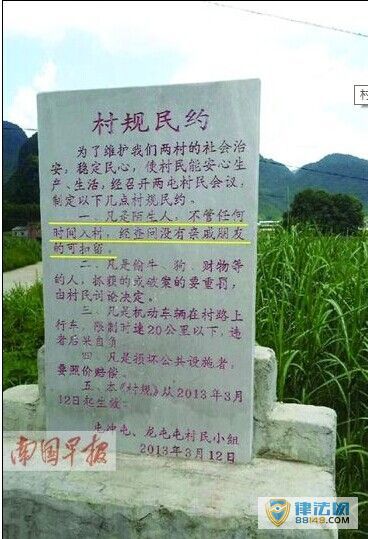 村规民约
为了维护我们两村的社会治
安，稳定民心，使村民能安心生
产、生活，经召开两屯村民会议，
制定以下几点村规民约。
一、凡是陌生人，不管任何
时间入村，经查问没有亲戚朋友
的可扣留。
二、凡是偷牛、狗、财物等
的人，抓获的或破案的要重罚，
由村民讨论决定。
三、凡是机动车辆在村路上
行车，限制时速20公里以下，违
者后果自负
四、凡是损坏公共设施者，
要照价赔偿。
五、本《村规》从2013年3月
12日起生效。
屯冲屯、龙屯屯村民小组
2013年3月12日
南国早报
律法网
88148.com
村